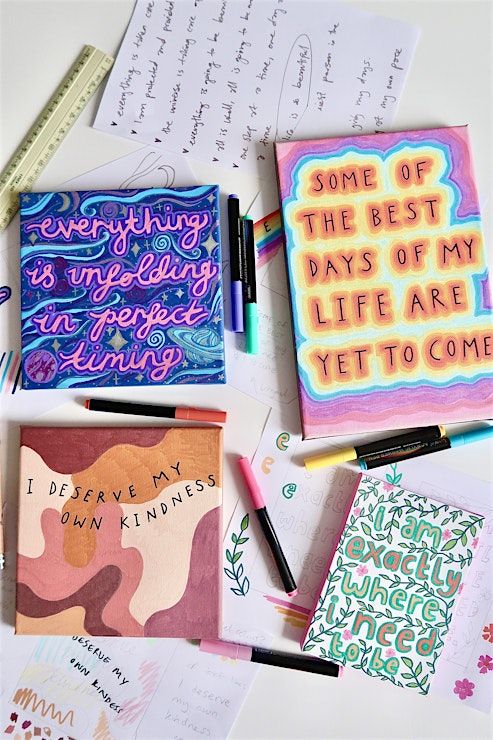 everything is taken care
I am protected and
the universe is taking care of
everything is going to be
all is well, all is going to be
one step at a time, one day
at a time
is so beautiful
my days.
of my own
everything
is unfolding
in perfect
timing
SOME OF
THE BEST
DAYS OF MY
LIFE ARE
YET TO COME
I DESERVE MY
OWN KINDNESS
i am
exactly
where
i need
to be
DESERVE MY
OWN KINDESS
deserve
my own
kindness